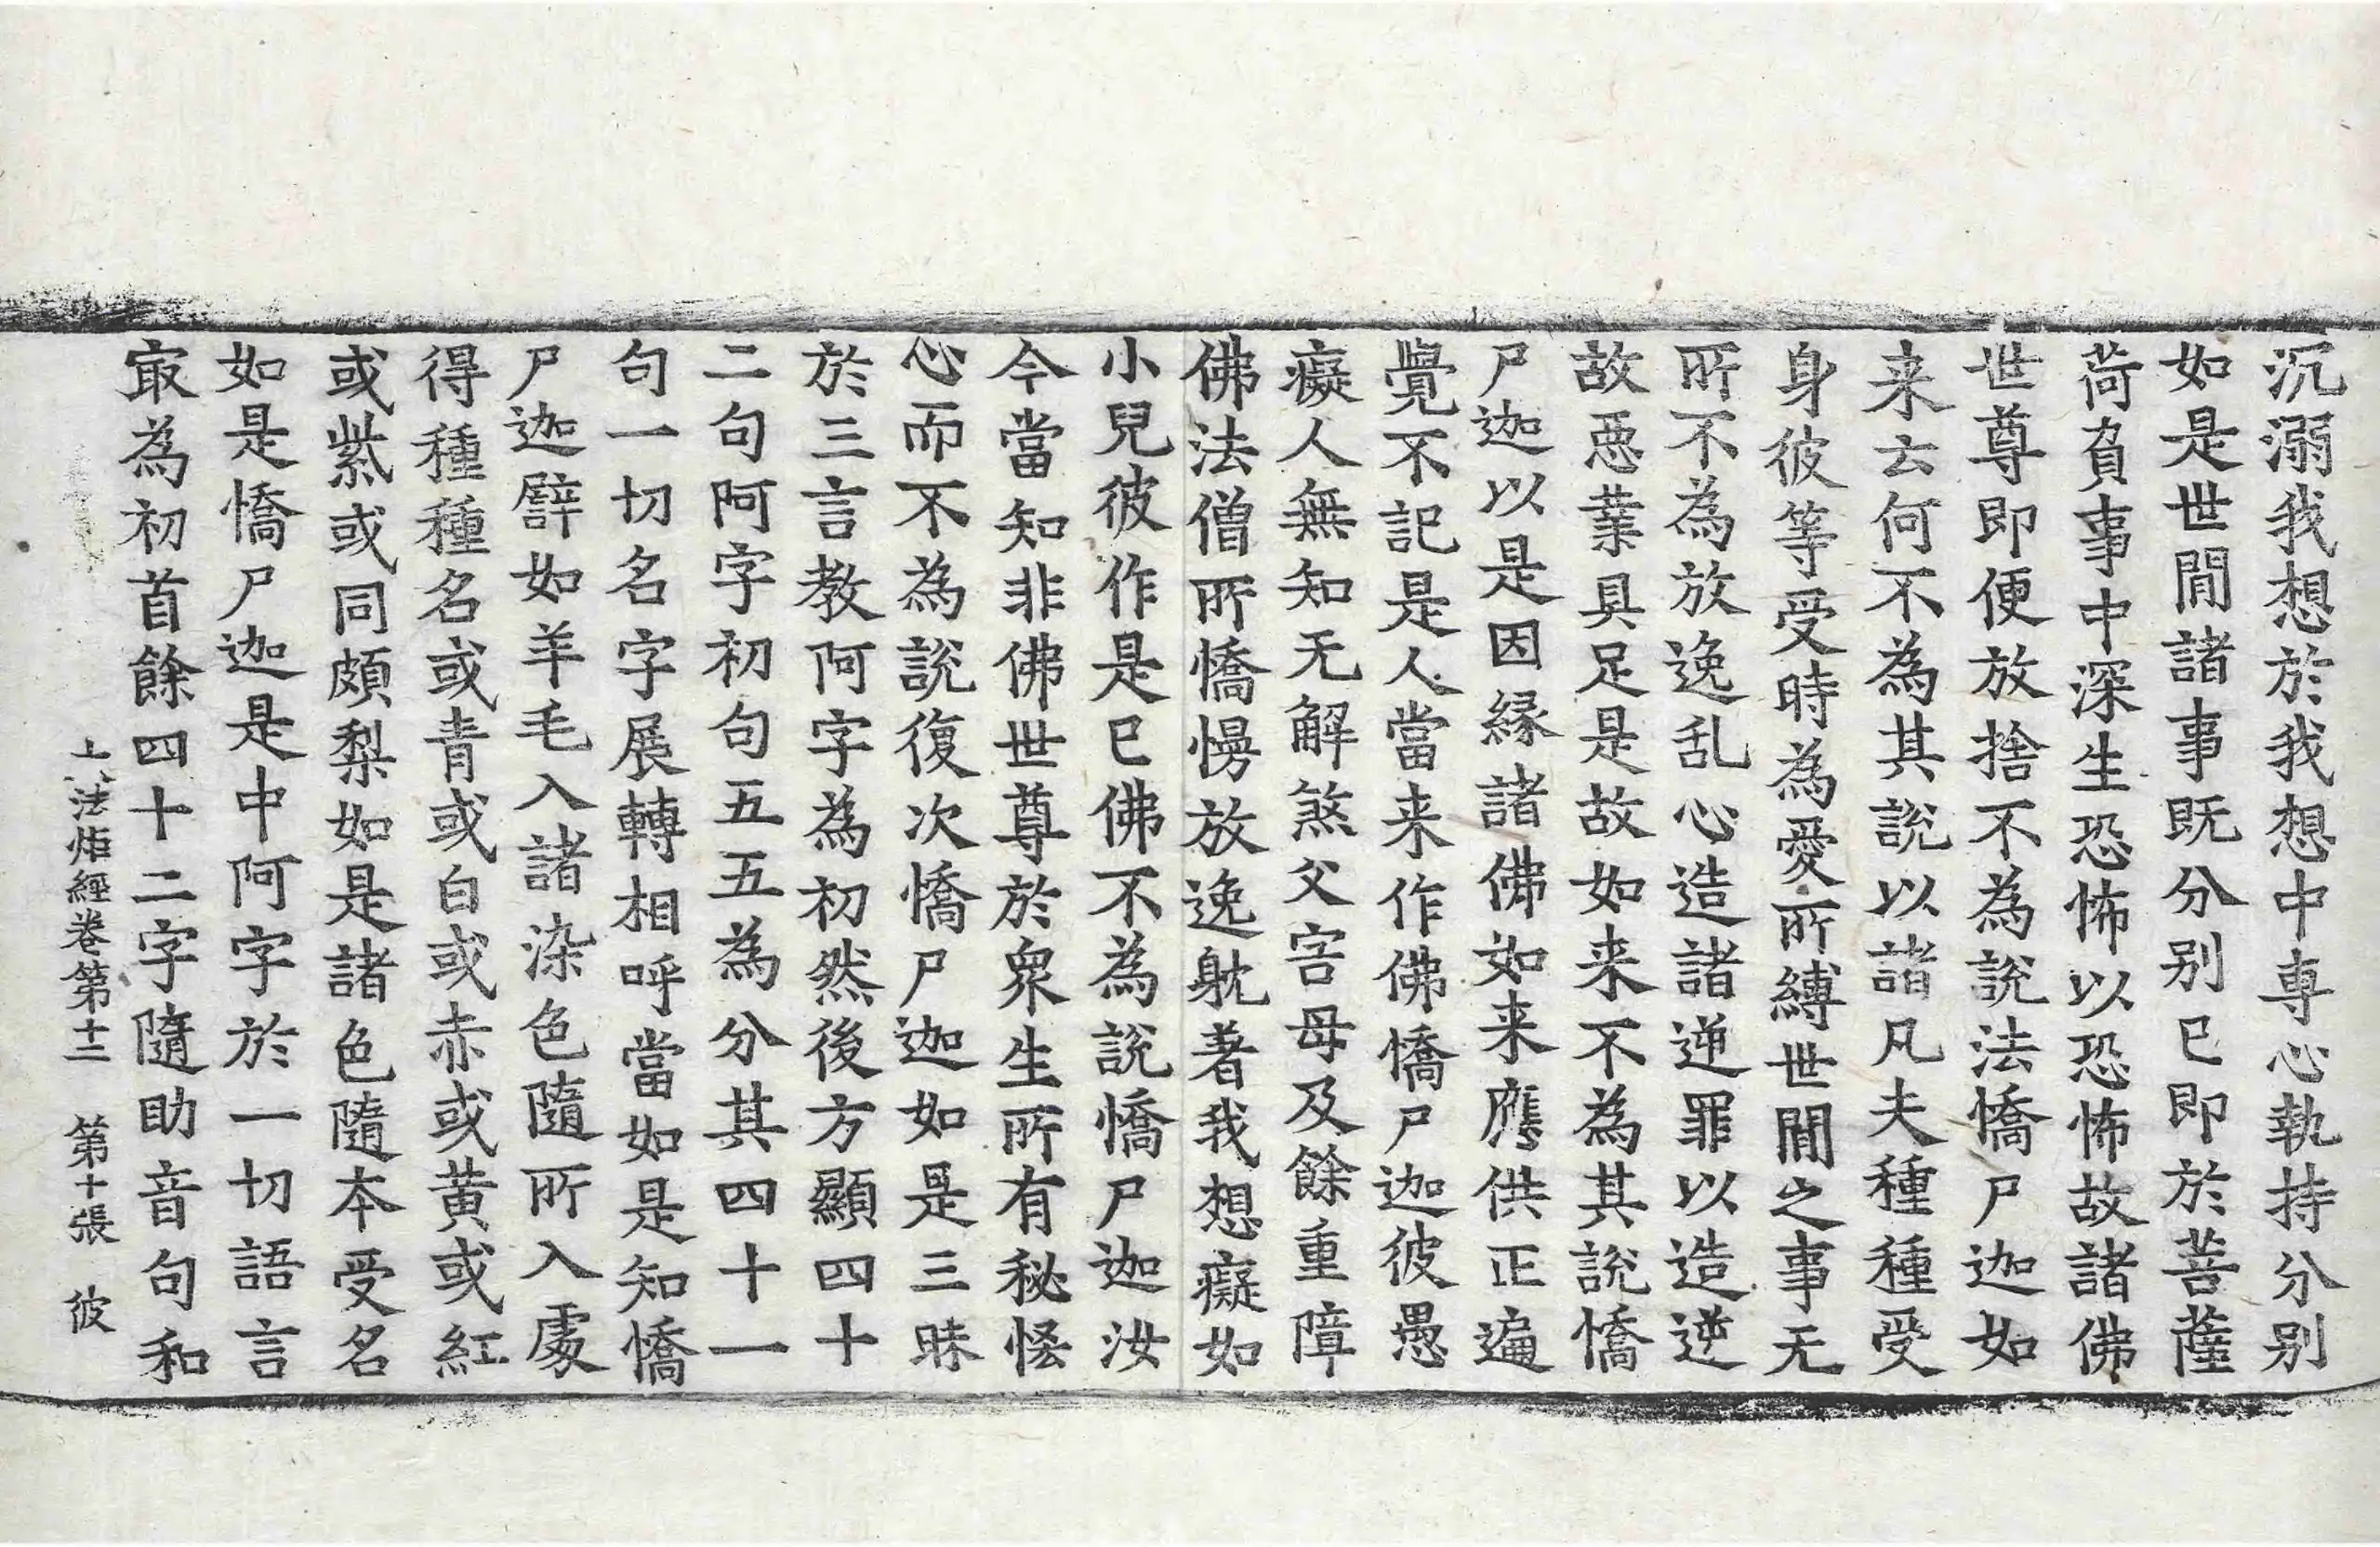 沉溺我想於我想中専心執持分别
如是世間諸事既分别已即於菩薩
荷負事中深生恐怖以恐怖故諸佛
世尊即便放捨不為說法憍尸迦如
来云何不為其說以諸凡夫種種受
身彼等受時為愛所縛世間之事无
所不為放逸乱心造諸逆罪以造逆
故惡業具足是故如来不為其說憍
尸迦以是因縁諸佛如来應供正遍
覺不記是人當来作佛憍尸迦彼愚
癡人無知无解煞父害母及餘重障
佛法僧所憍慢放逸躭著我想癡如
小兒彼作是已佛不為說憍尸迦汝
今當知非佛世尊於衆生所有秘恡
心而不為說復次憍尸迦如是三昧
於三言教阿字為初然後方顯四十
二句阿字初句五五為分其四十一
句一切名字展轉相呼當如是知憍
尸迦譬如羊毛入諸染色隨所入處
得種種名或青或白或赤或黄或紅
或紫或同頗梨如是諸色隨本受名
如是憍尸迦是中阿字於一切語言
㝡為初首餘四十二字隨助音句和
大法炬經卷第十二 第十張 彼